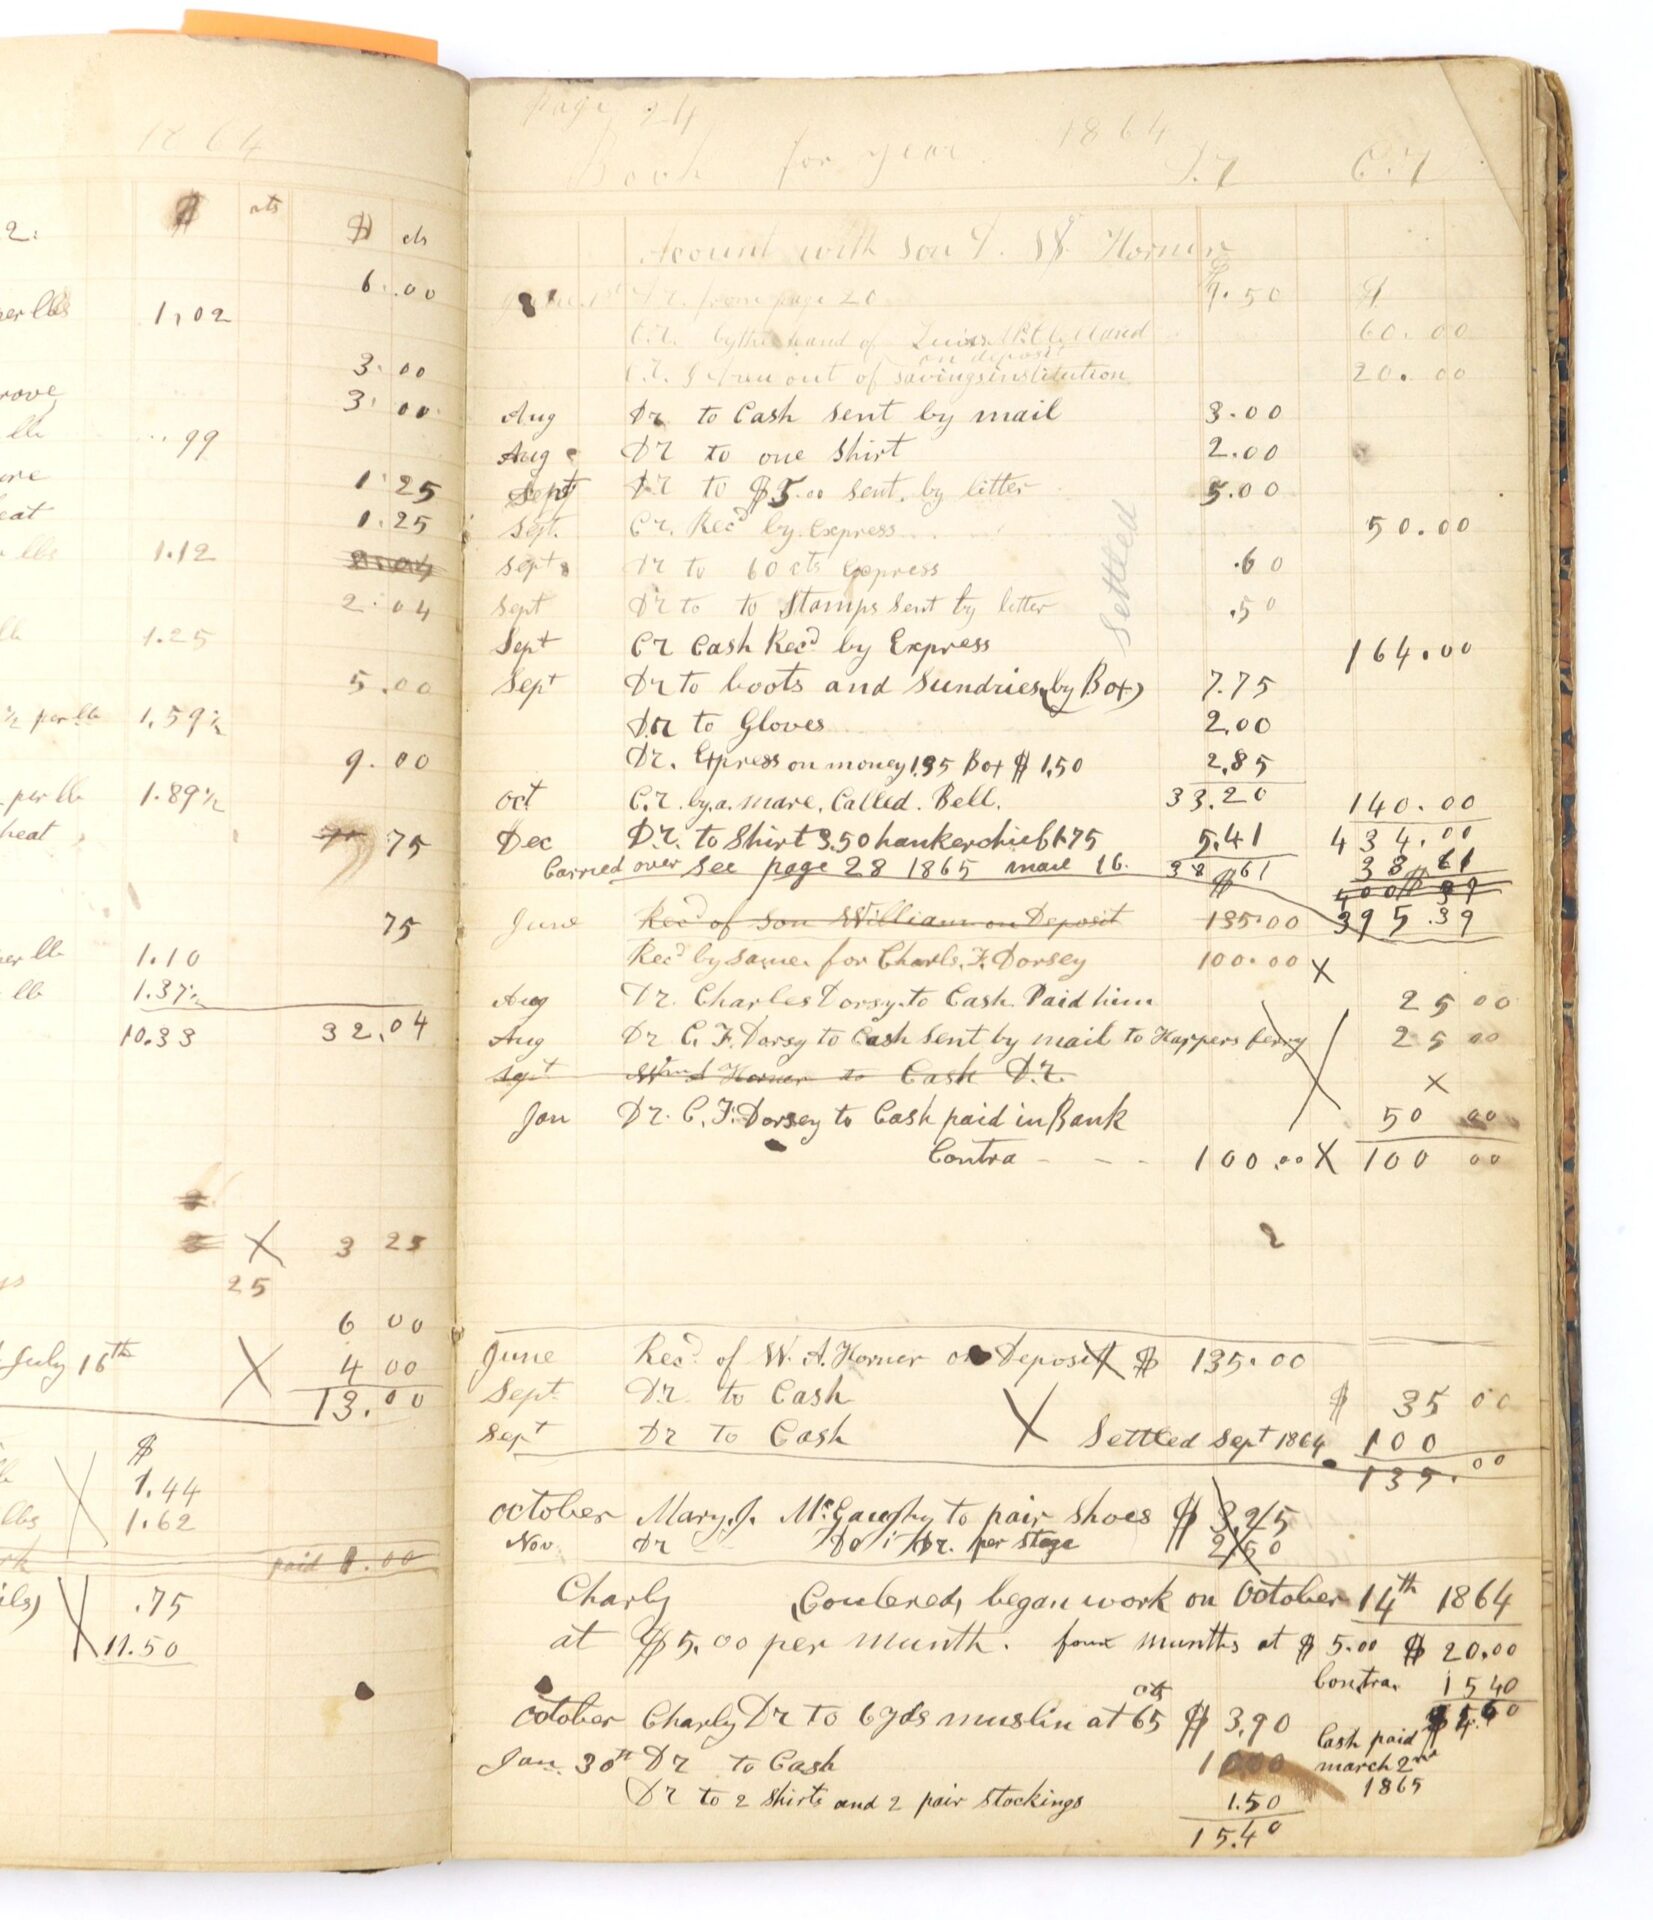 1864
$ cts $ cts
2:
6.00
per lbs 1.02
3.00
3.00
lb .99
1.25
1.25
lbs 1.12
2.04
lb 1.25
5.00
½ per lb 1.59½
9.00
per lb 1.89½
heat 75
75
per lb 1.10
lb 1.37½
10.33 32.04
X 3 25
25
6 00
July 16th X 4 00
13.00
$
1.44
lbs 1.62
paid 1.00
.75
11.50
Page 24
Book for year 1864
D.r C.r
Acount with son D. W. Horner
Dr. from page 20 9.50 $
C.r. by the hand of 60.00
on deposit
out of savingsinstitution 20.00
Aug Dr to Cash sent by mail 3.00
Aug Dr to one Shirt 2.00
Sept Dr to $5.00 sent by litter 5.00
Sept. Cr. Recd by express 50.00
Sept Dr to 60 cts express .60
Sept Dr to to Stamps sent by litter .50
Settled
Sept Cr Cash Recd by Express 164.00
Sept Dr to boots and Sundries (by Box) 7.75
Dr to Gloves 2.00
Dr. Express on money 1.35 Box $1.50 2.85
33.20
Oct C.r. by. a. mare. Called. Bell. 140.00
Dec D.r. to Shirt 3.50 hankerchief 1.75 5.41 434.00
Carried over see page 28 1865 mare 16. 38.61 38.61
$ 400$39
June Recd of Son William on Deposit 135.00 395.39
Recd by same. for Charls. F. Dorsey 100.00 X
Aug Dr. Charles Dorsy. to Cash Paid him 25 00
Aug Dr C. F. Dorsy to Cash sent by mail to Harpers ferry 25 00
Sept Wm A Horner to Cash D.r. X
Jan Dr. C. F. Dorsey to Cash paid in Bank 50 00
Contra - - - 100.00 X 100 00
2
June Recd. of W. A. Horner on Deposit $ 135.00
Sept. Dr. to Cash $ 35 00
Sept Dr to Cash X Settled Sept 1864 100
135.00
october Mary. J. McGaughy to pair Shoes $ 3.25
Nov. Dr Do Dr. per Stage 2.50
Charly (Coulered) began work on October 14th 1864
at $5.00 per munth. four munths at $5.00 $20.00
Contra. 15 40
october Charly Dr to 6 yds muslin at 65 cts $ 3.90 $ 4.60
Cash paid
Jan. 30th Dr to Cash 10.00 march 2nd
1865
Dr to 2 Shirts and 2 pair stockings 1.50
15.40